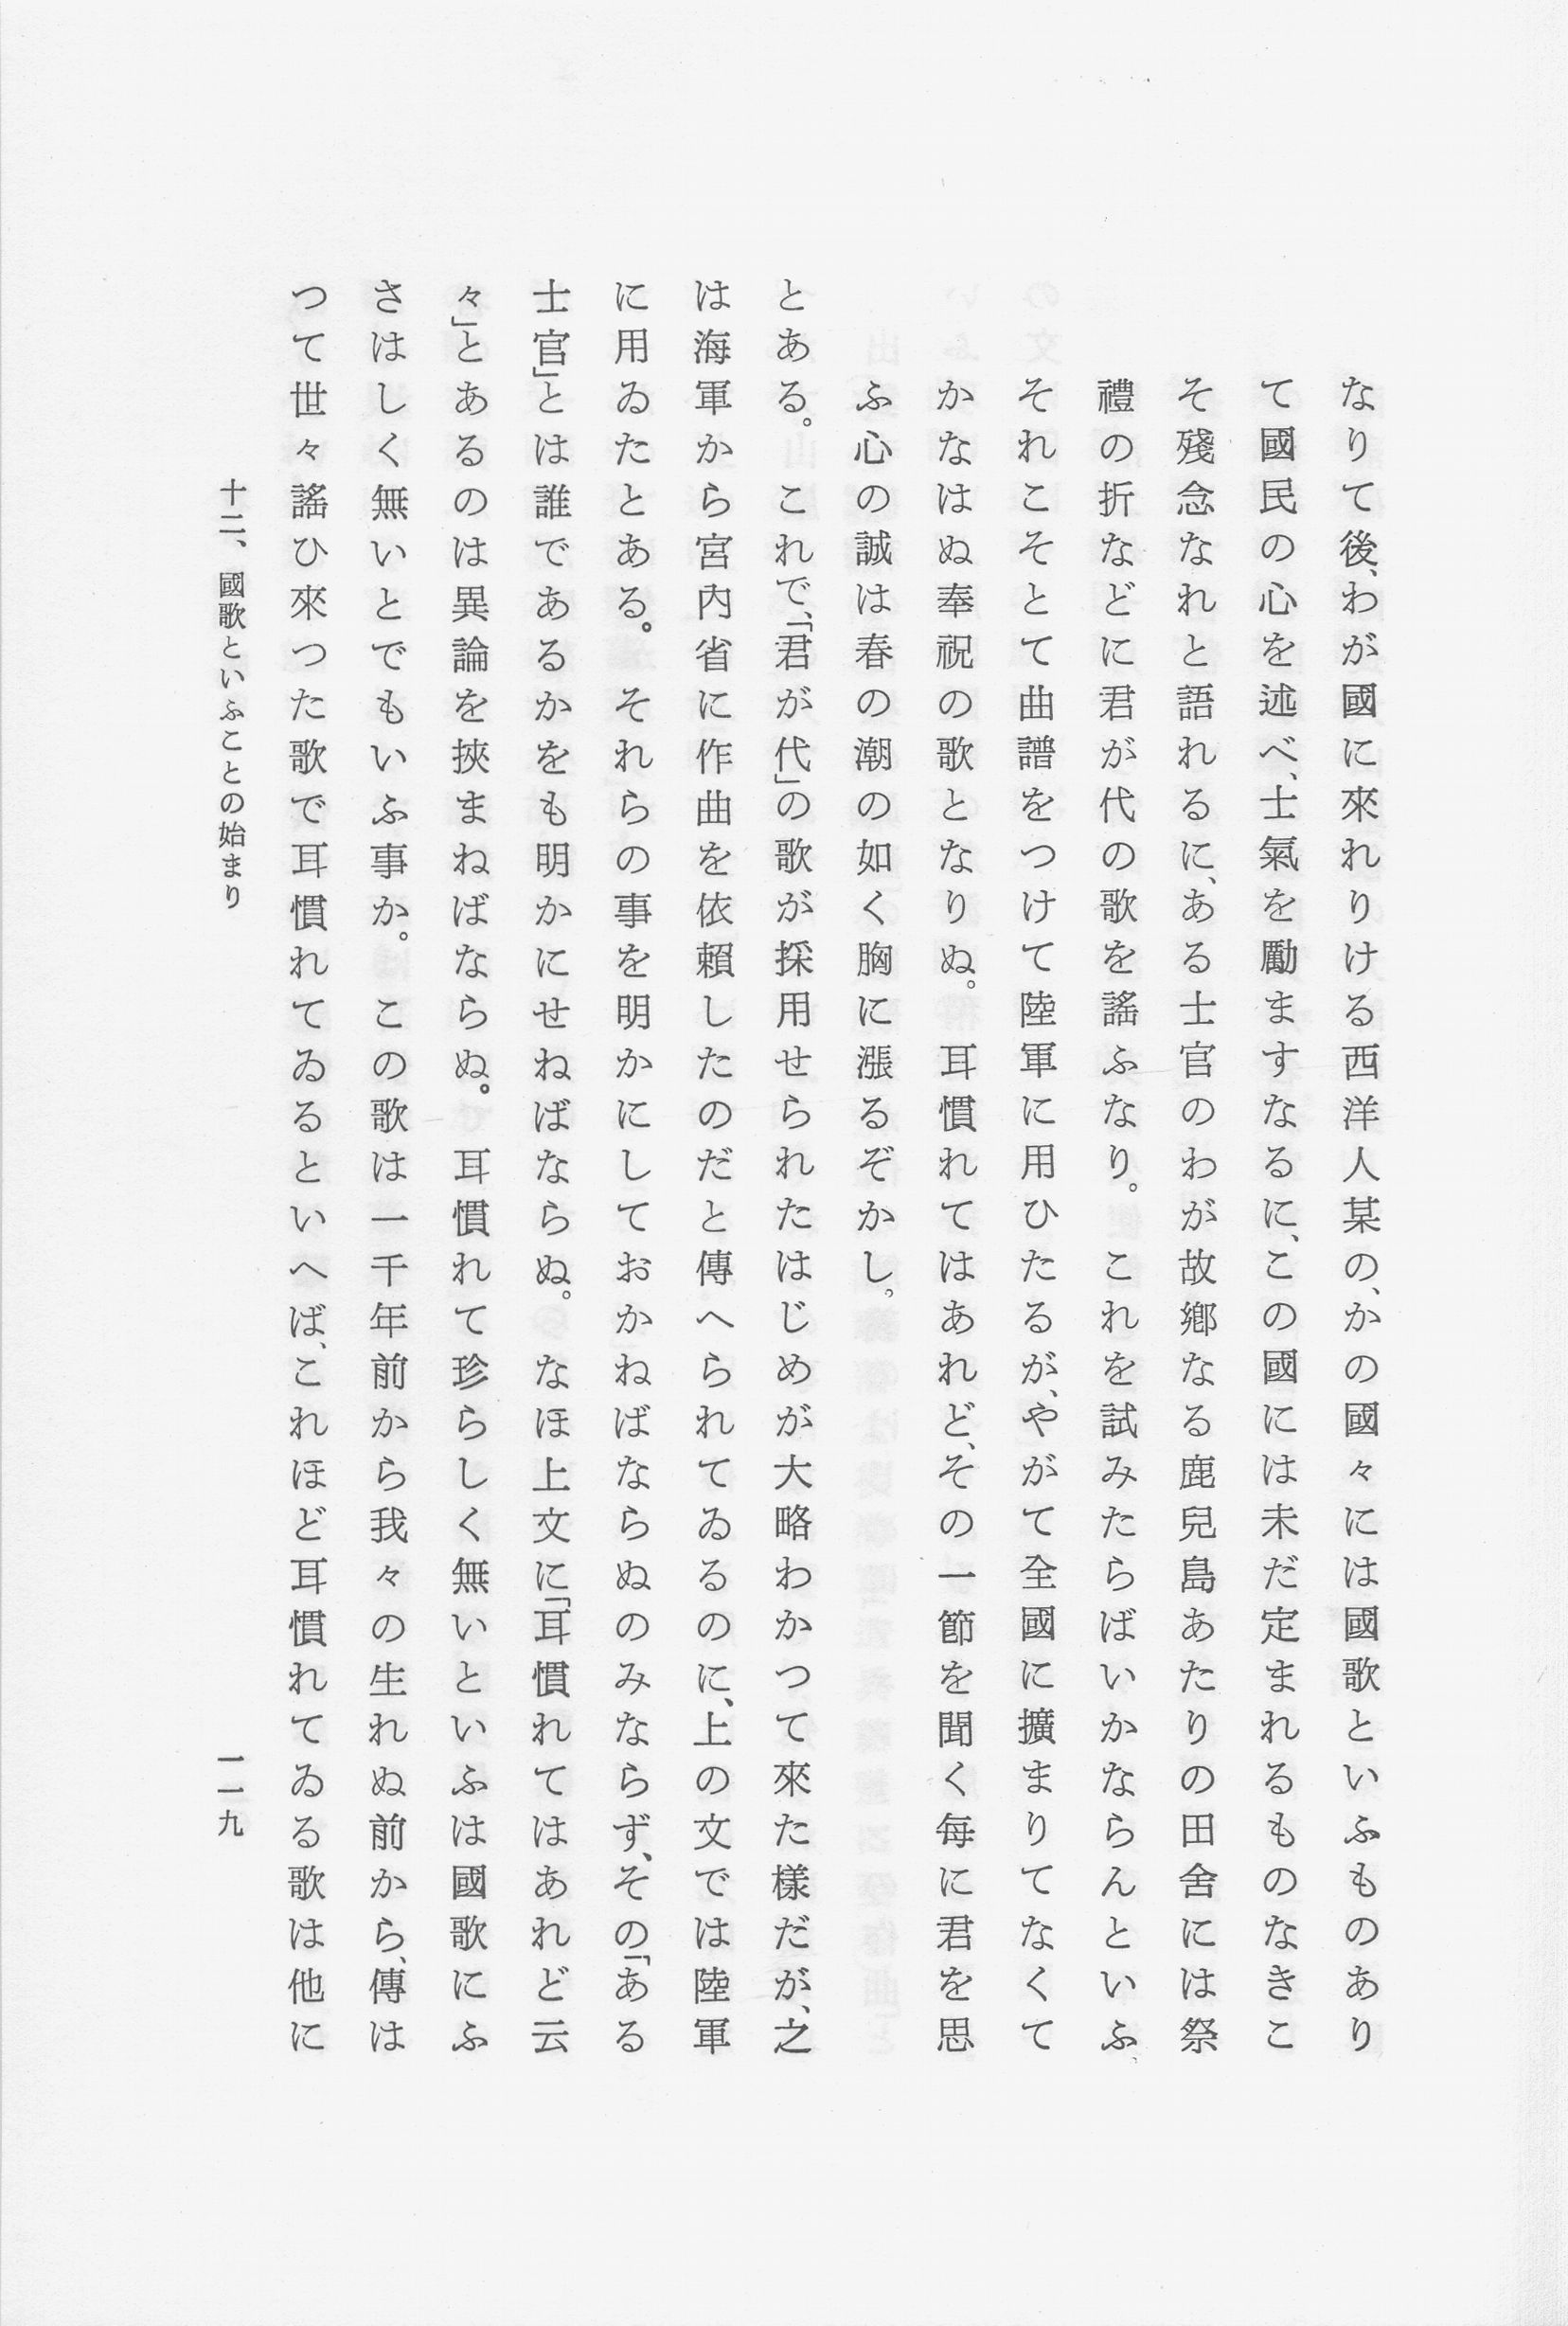 なりて後、わが國に來れりける西洋人某の、かの國々には國歌といふものあり
て國民の心を述べ、士氣を勵ますなるに、この國には未だ定まれるものなきこ
そ殘念なれと語れるに、ある士官のわが故鄕なる鹿兒島あたりの田舍には祭
禮の折などに君が代の歌を謠ふなり。これを試みたらばいかならんといふ、
それこそとて曲譜をつけて陸軍に用ひたるが、やがて全國に擴まりてなくて
かなはぬ奉祝の歌となりぬ。耳慣れてはあれど、その一節を聞く每に君を思
ふ心の誠は春の潮の如く胸に漲るぞかし。
とある。これで、「君が代」の歌が採用せられたはじめが大略わかつて來た樣だが、之
は海軍から宮內省に作曲を依賴したのだと傳へられてゐるのに、上の文では陸軍
に用ゐたとある。それらの事を明かにしておかねばならぬのみならず、その「ある
士官」とは誰であるかをも明かにせねばならぬ。なほ上文に「耳慣れてはあれど云
々」とあるのは異論を挾まねばならぬ。耳慣れて珍らしく無いといふは國歌にふ
さはしく無いとでもいふ事か。この歌は一千年前から我々の生れぬ前から、傳は
つて世々謠ひ來つた歌で耳慣れてゐるといへば、これほど耳慣れてゐる歌は他に
十二、國歌といふことの始まり
一一九